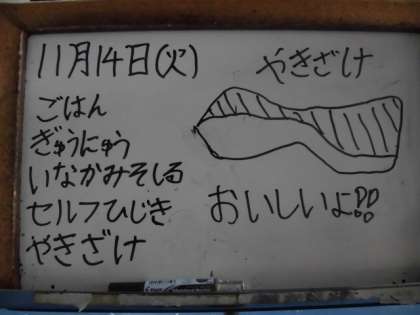 11月14日(火)
ごはん
ぎゅうにゅう
いなかみそしる
セルフひじき
やきざけ
やきざけ
おいしいよ!!